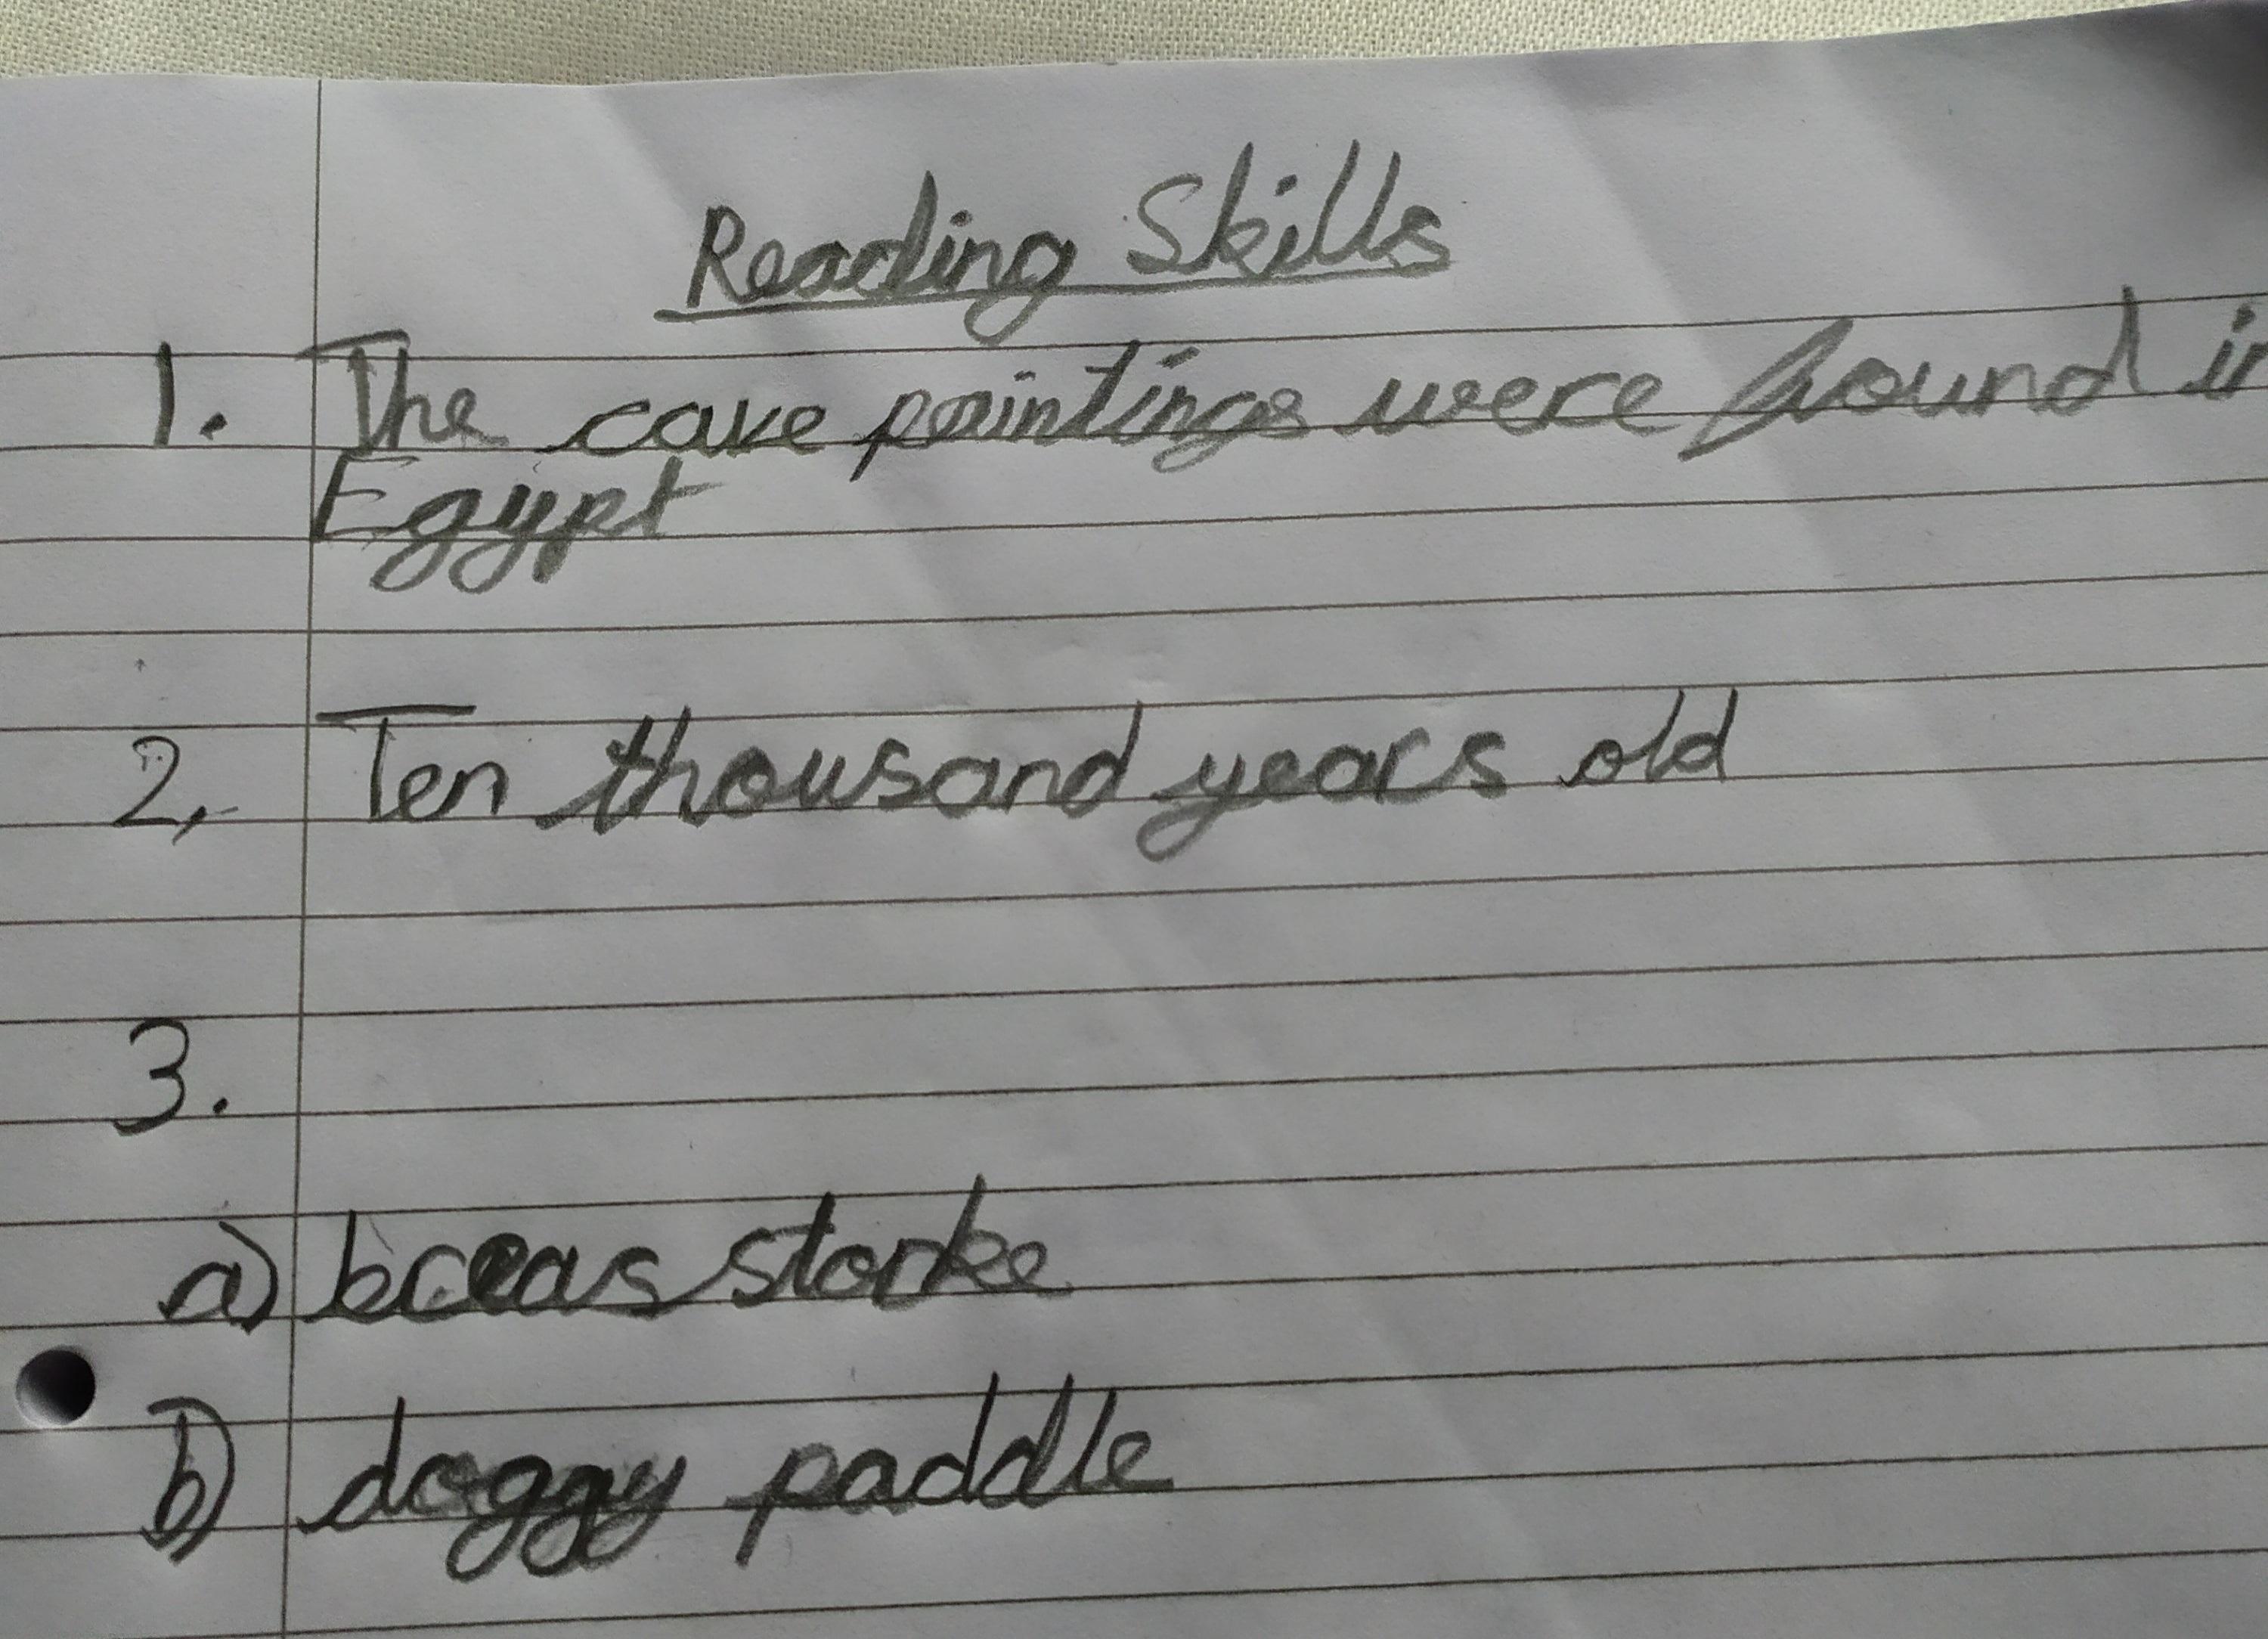 Reading Skills
1. The cave paintings were found in
Egypt
2. Ten thousand years old
3.
a) breas storke
b) doggy paddle